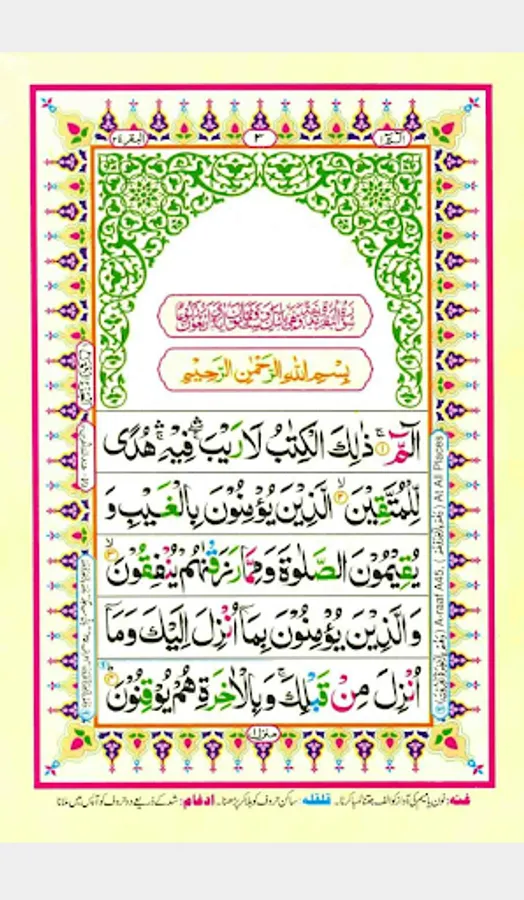 البقرة ٢
٣
الٓمّٓ ١
بِسْمِ اللهِ الرَّحْمٰنِ الرَّحِيْمِ
الٓمّٓ ۚ ۝١ ذٰلِكَ الْكِتٰبُ لَا رَيْبَ ۛ فِيْهِ ۛ هُدًى
لِّلْمُتَّقِيْنَ ۙ ۝٢ الَّذِيْنَ يُؤْمِنُوْنَ بِالْغَيْبِ وَ
يُقِيْمُوْنَ الصَّلٰوةَ وَمِمَّا رَزَقْنٰهُمْ يُنْفِقُوْنَ ۙ ۝٣
وَالَّذِيْنَ يُؤْمِنُوْنَ بِمَاۤ اُنْزِلَ اِلَيْكَ وَمَاۤ
اُنْزِلَ مِنْ قَبْلِكَ ۚ وَبِالْاٰخِرَةِ هُمْ يُوْقِنُوْنَ ؕ ۝٤
A-raaf A45, ( ) At All Places
منزل ١
غنہ: نون یا میم کی آواز کو الف جتنا لمبا کرنا۔ قلقلہ: ساکن حروف کو ہلا کر پڑھنا۔ ادغام: شد کے ذریعے دو حروف کو آپس میں ملانا